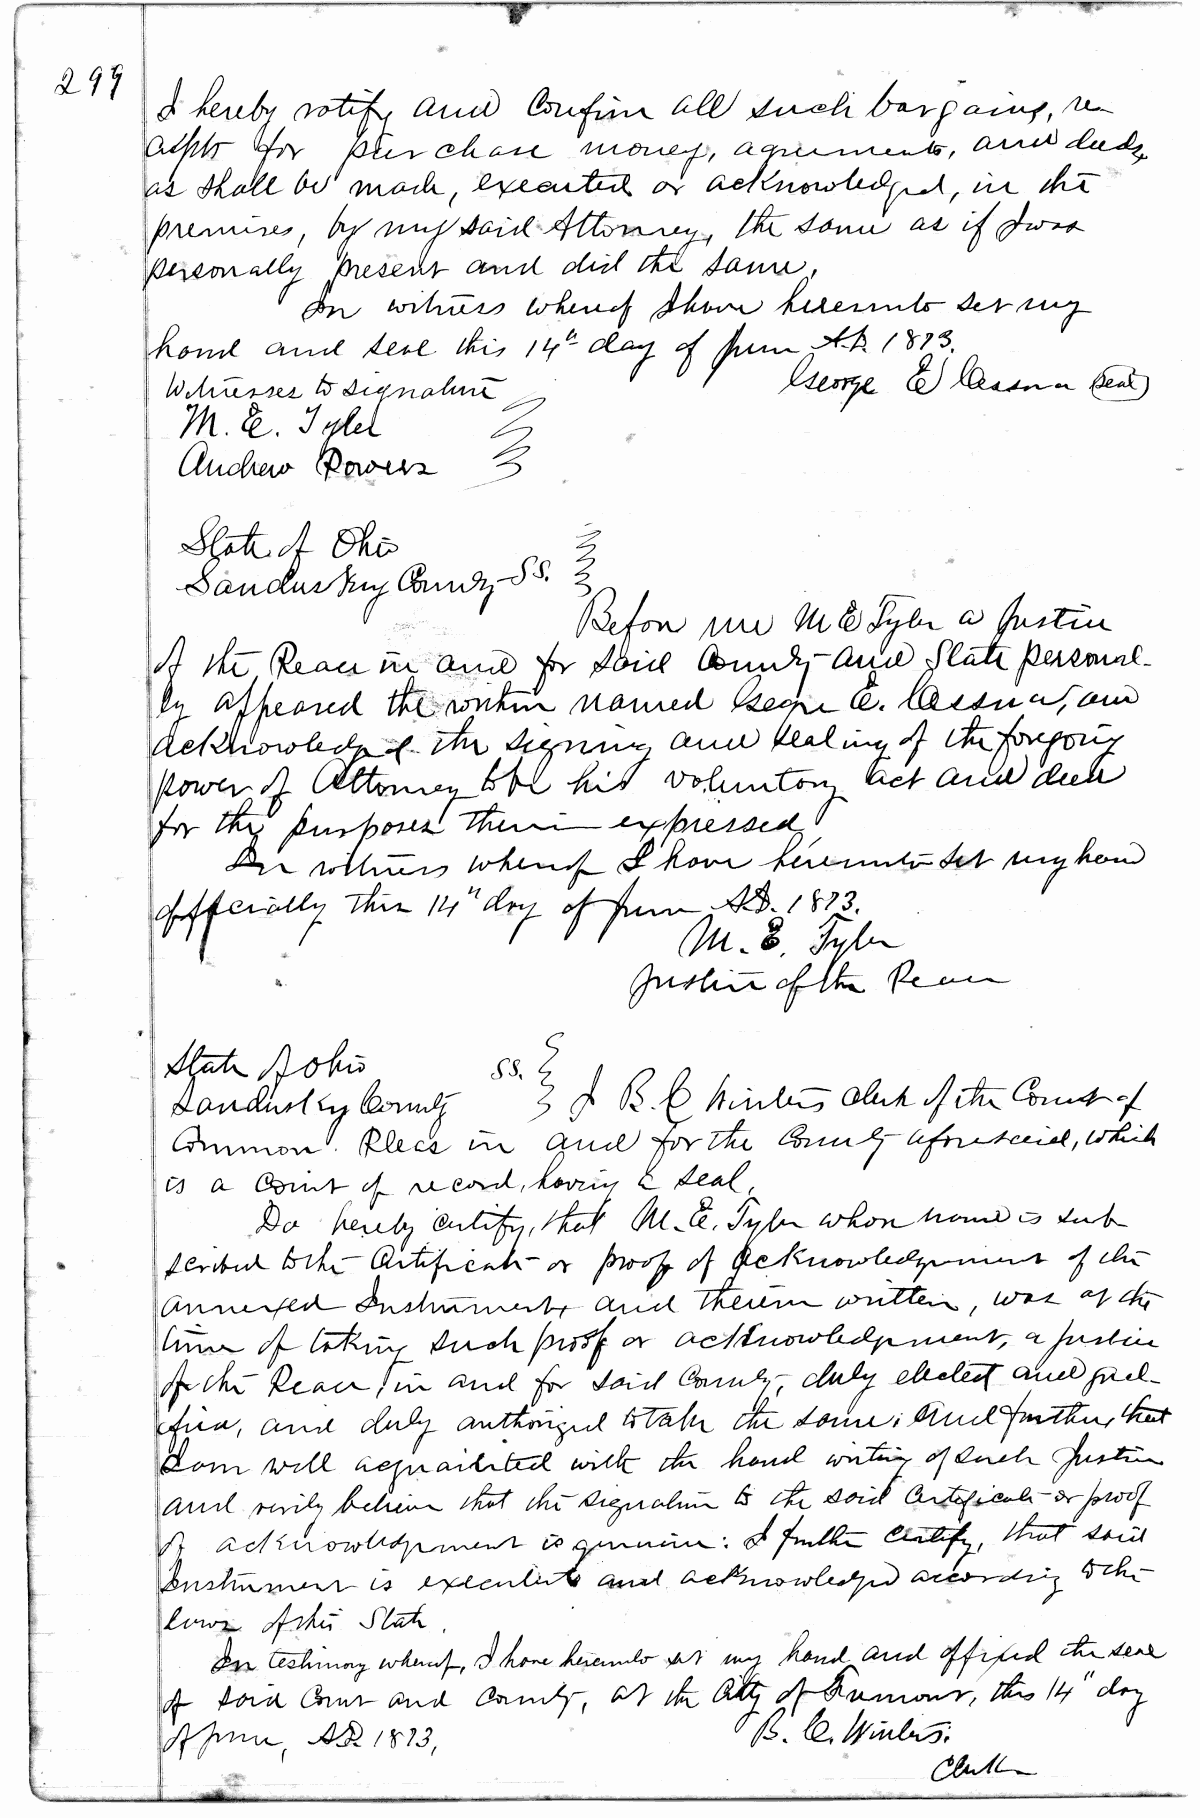 299
I hereby ratify and Confirm all such bargains, re-
ceipts for purchase money, agreements, and deeds,
as shall be made, executed or acknowledged, in the
premises, by my said Attorney, the same as if I was
personally present and did the same.
In witness whereof I have hereunto set my
hand and seal this 14th day of June A.D. 1873.
Witnesses to signature George E Cessna (seal)
M. E. Tyler
Andrew Powers
State of Ohio
Sandusky County SS.
Before me M E Tyler a Justice
of the Peace in and for said County and State personal-
ly appeared the within named George E. Cessna, and
acknowledged the signing and sealing of the foregoing
power of Attorney to be his voluntary act and deed
for the purposes therein expressed.
In witness whereof I have hereunto set my hand
officially this 14" day of June A.D. 1873.
M. E. Tyler
Justice of the Peace
State of Ohio SS.
Sandusky County I B. C Winters Clerk of the Court of
Common Pleas in and for the County aforesaid, which
is a Court of record, having a seal,
Do hereby certify, that M. E. Tyler whose name is sub-
scribed to the Certificate or proof of acknowledgement of the
annexed Instrument, and therein written, was at the
time of taking such proof or acknowledgement, a Justice
of the Peace, in and for said County, duly elected and
and duly authorized to take the same; And further, that
I am well acquainted with the hand writing of such Justice
and verily believe that the signature to the said Certificate or proof
of acknowledgement is genuine: I further certify, that said
Instrument is executed and acknowledged according to the
laws of this State.
In testimony whereof, I have hereunto set my hand and affixed the seal
of said Court and County, at the City of Fremont, this 14" day
of June, A.D. 1873, B. C. Winters.
Clerk